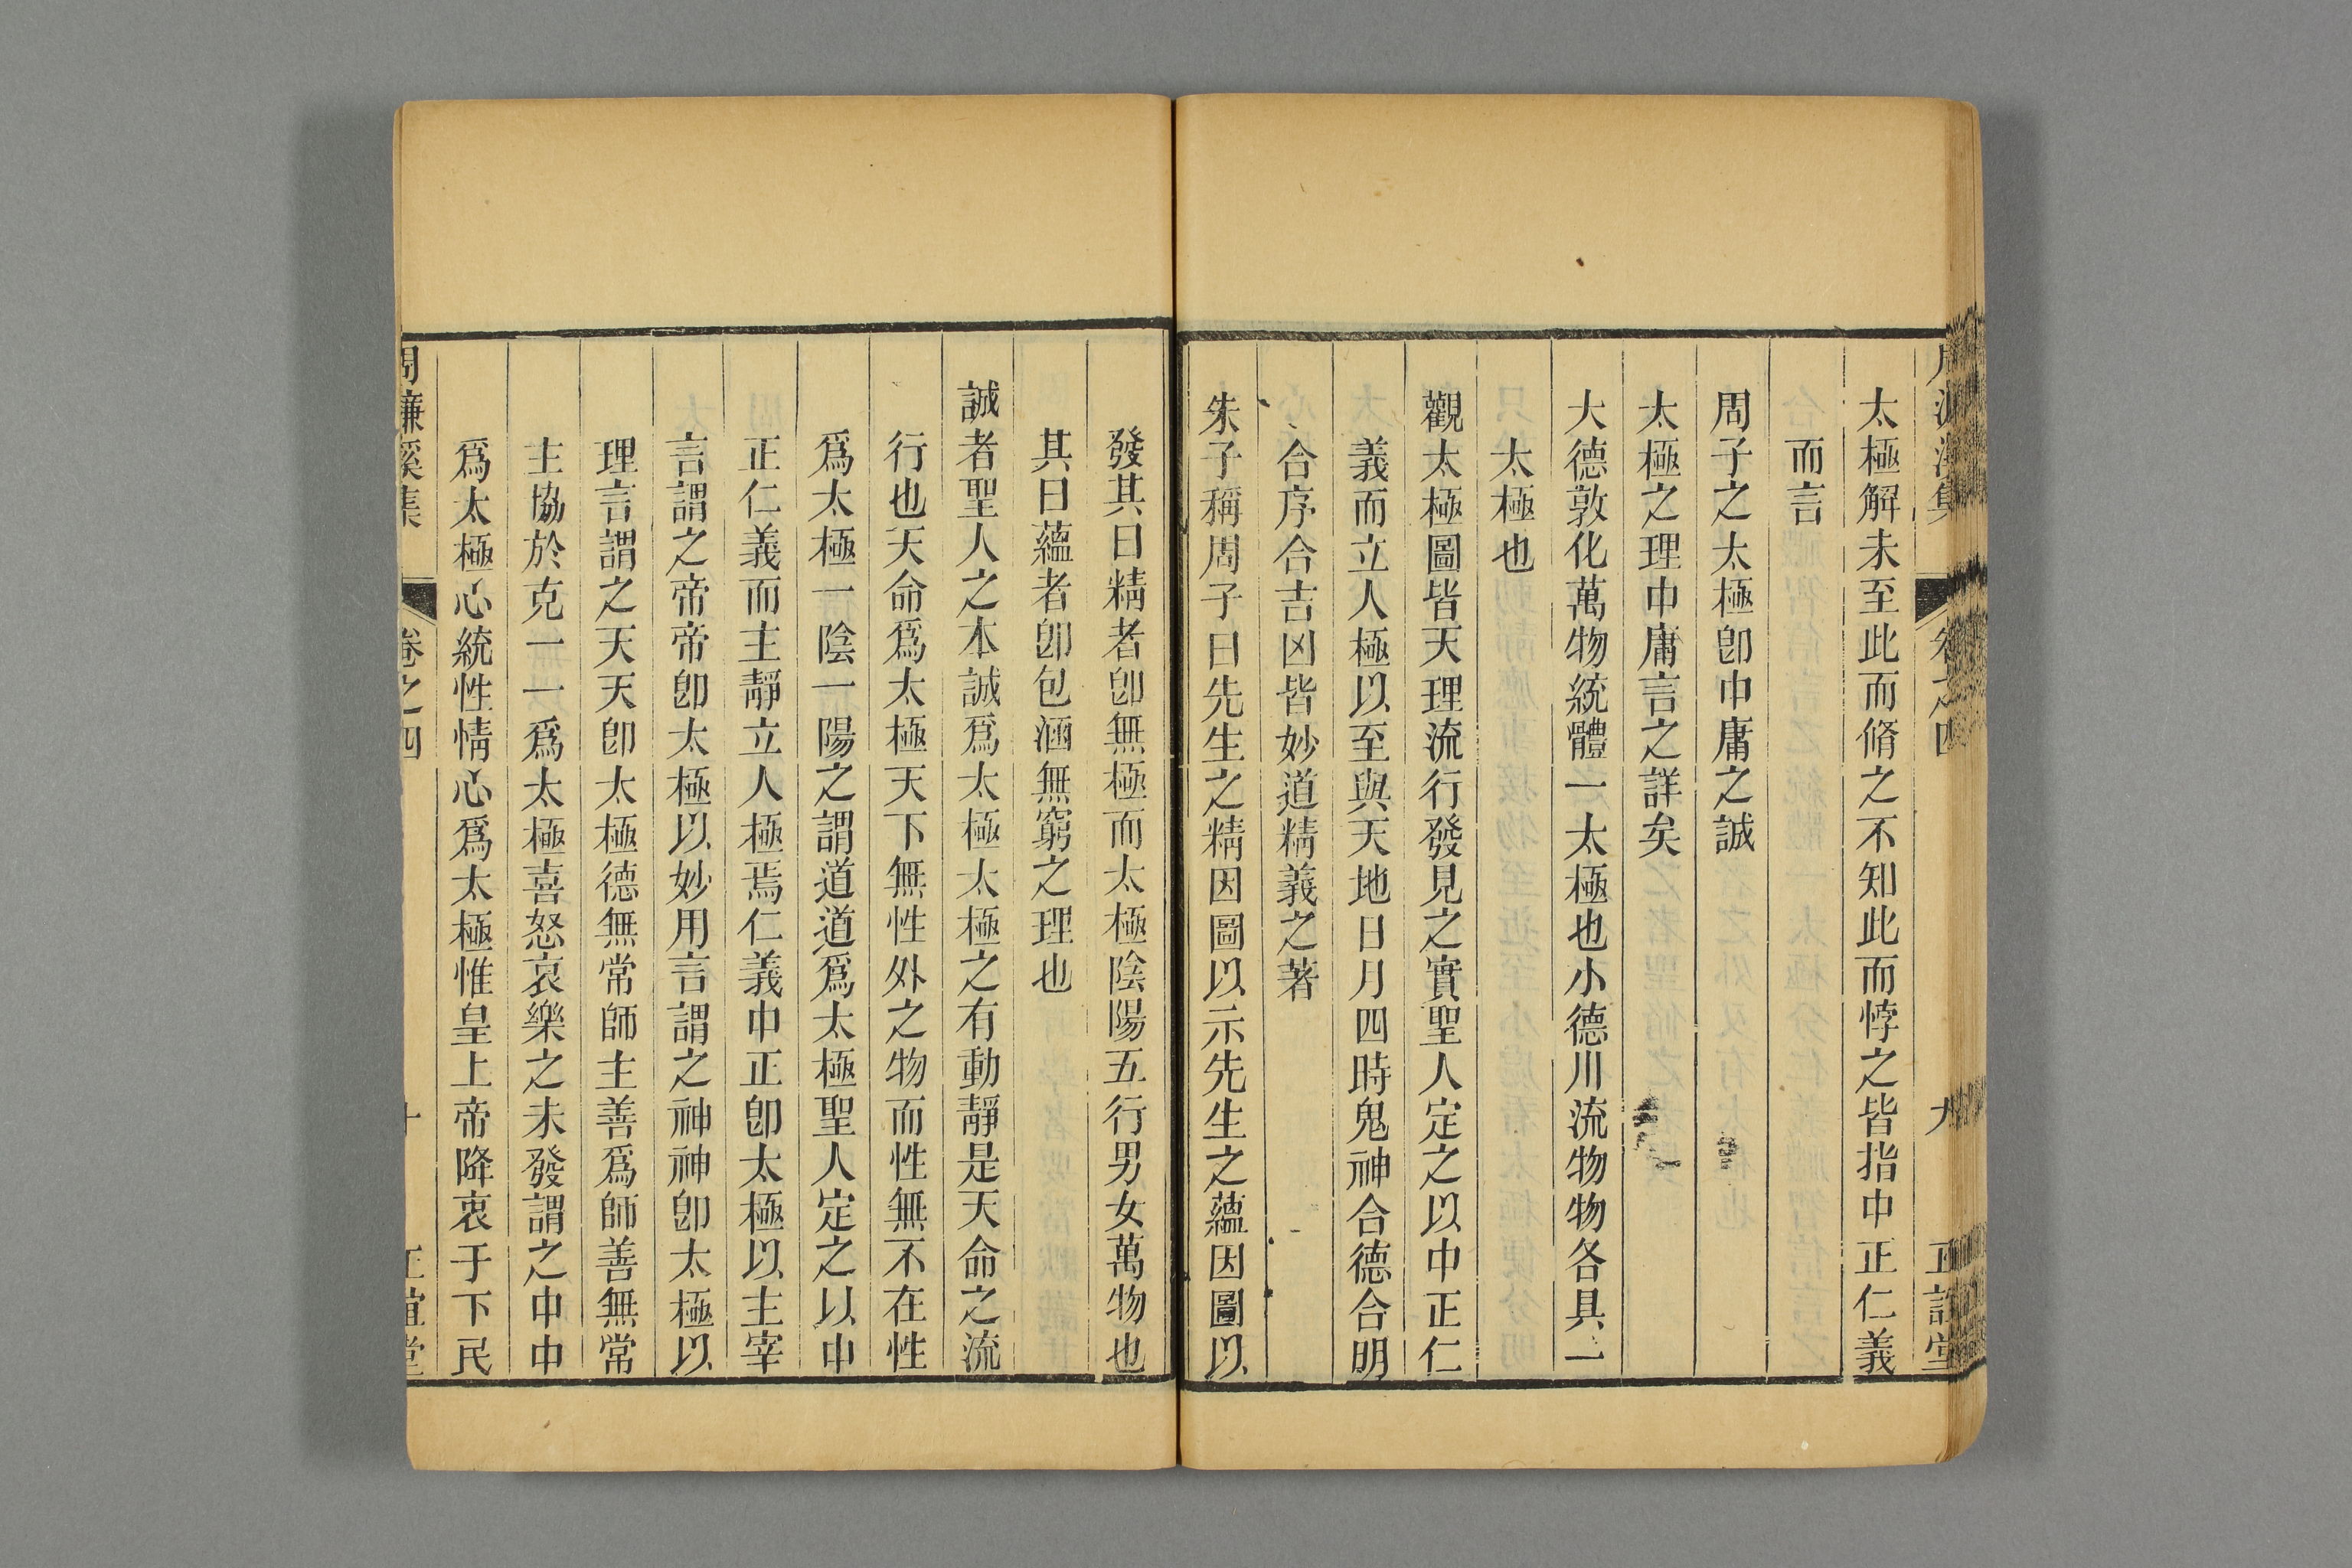 太極解未至此而脩之不知此而悖之皆指中正仁義
而言
周子之太極卽中庸之誠
太極之理中庸言之詳矣
大德敦化萬物統體一太極也小德川流物物各具一
太極也
觀太極圖皆天理流行發見之實聖人定之以中正仁
義而立人極以至與天地日月四時鬼神合德合明
合序合吉凶皆妙道精義之著
朱子稱周子曰先生之精因圖以示先生之蘊因圖以
發其曰精者卽無極而太極陰陽五行男女萬物也
其曰蘊者卽包涵無窮之理也
誠者聖人之本誠爲太極太極之有動靜是天命之流
行也天命爲太極天下無性外之物而性無不在性
爲太極一陰一陽之謂道道爲太極聖人定之以中
正仁義而主靜立人極焉仁義中正卽太極以主宰
言謂之帝帝卽太極以妙用言謂之神神卽太極以
理言謂之天天卽太極德無常師主善爲師善無常
主協於克一一爲太極喜怒哀樂之未發謂之中中
爲太極心統性情心爲太極惟皇上帝降衷于下民
周濂溪集 卷之四 十 正誼堂